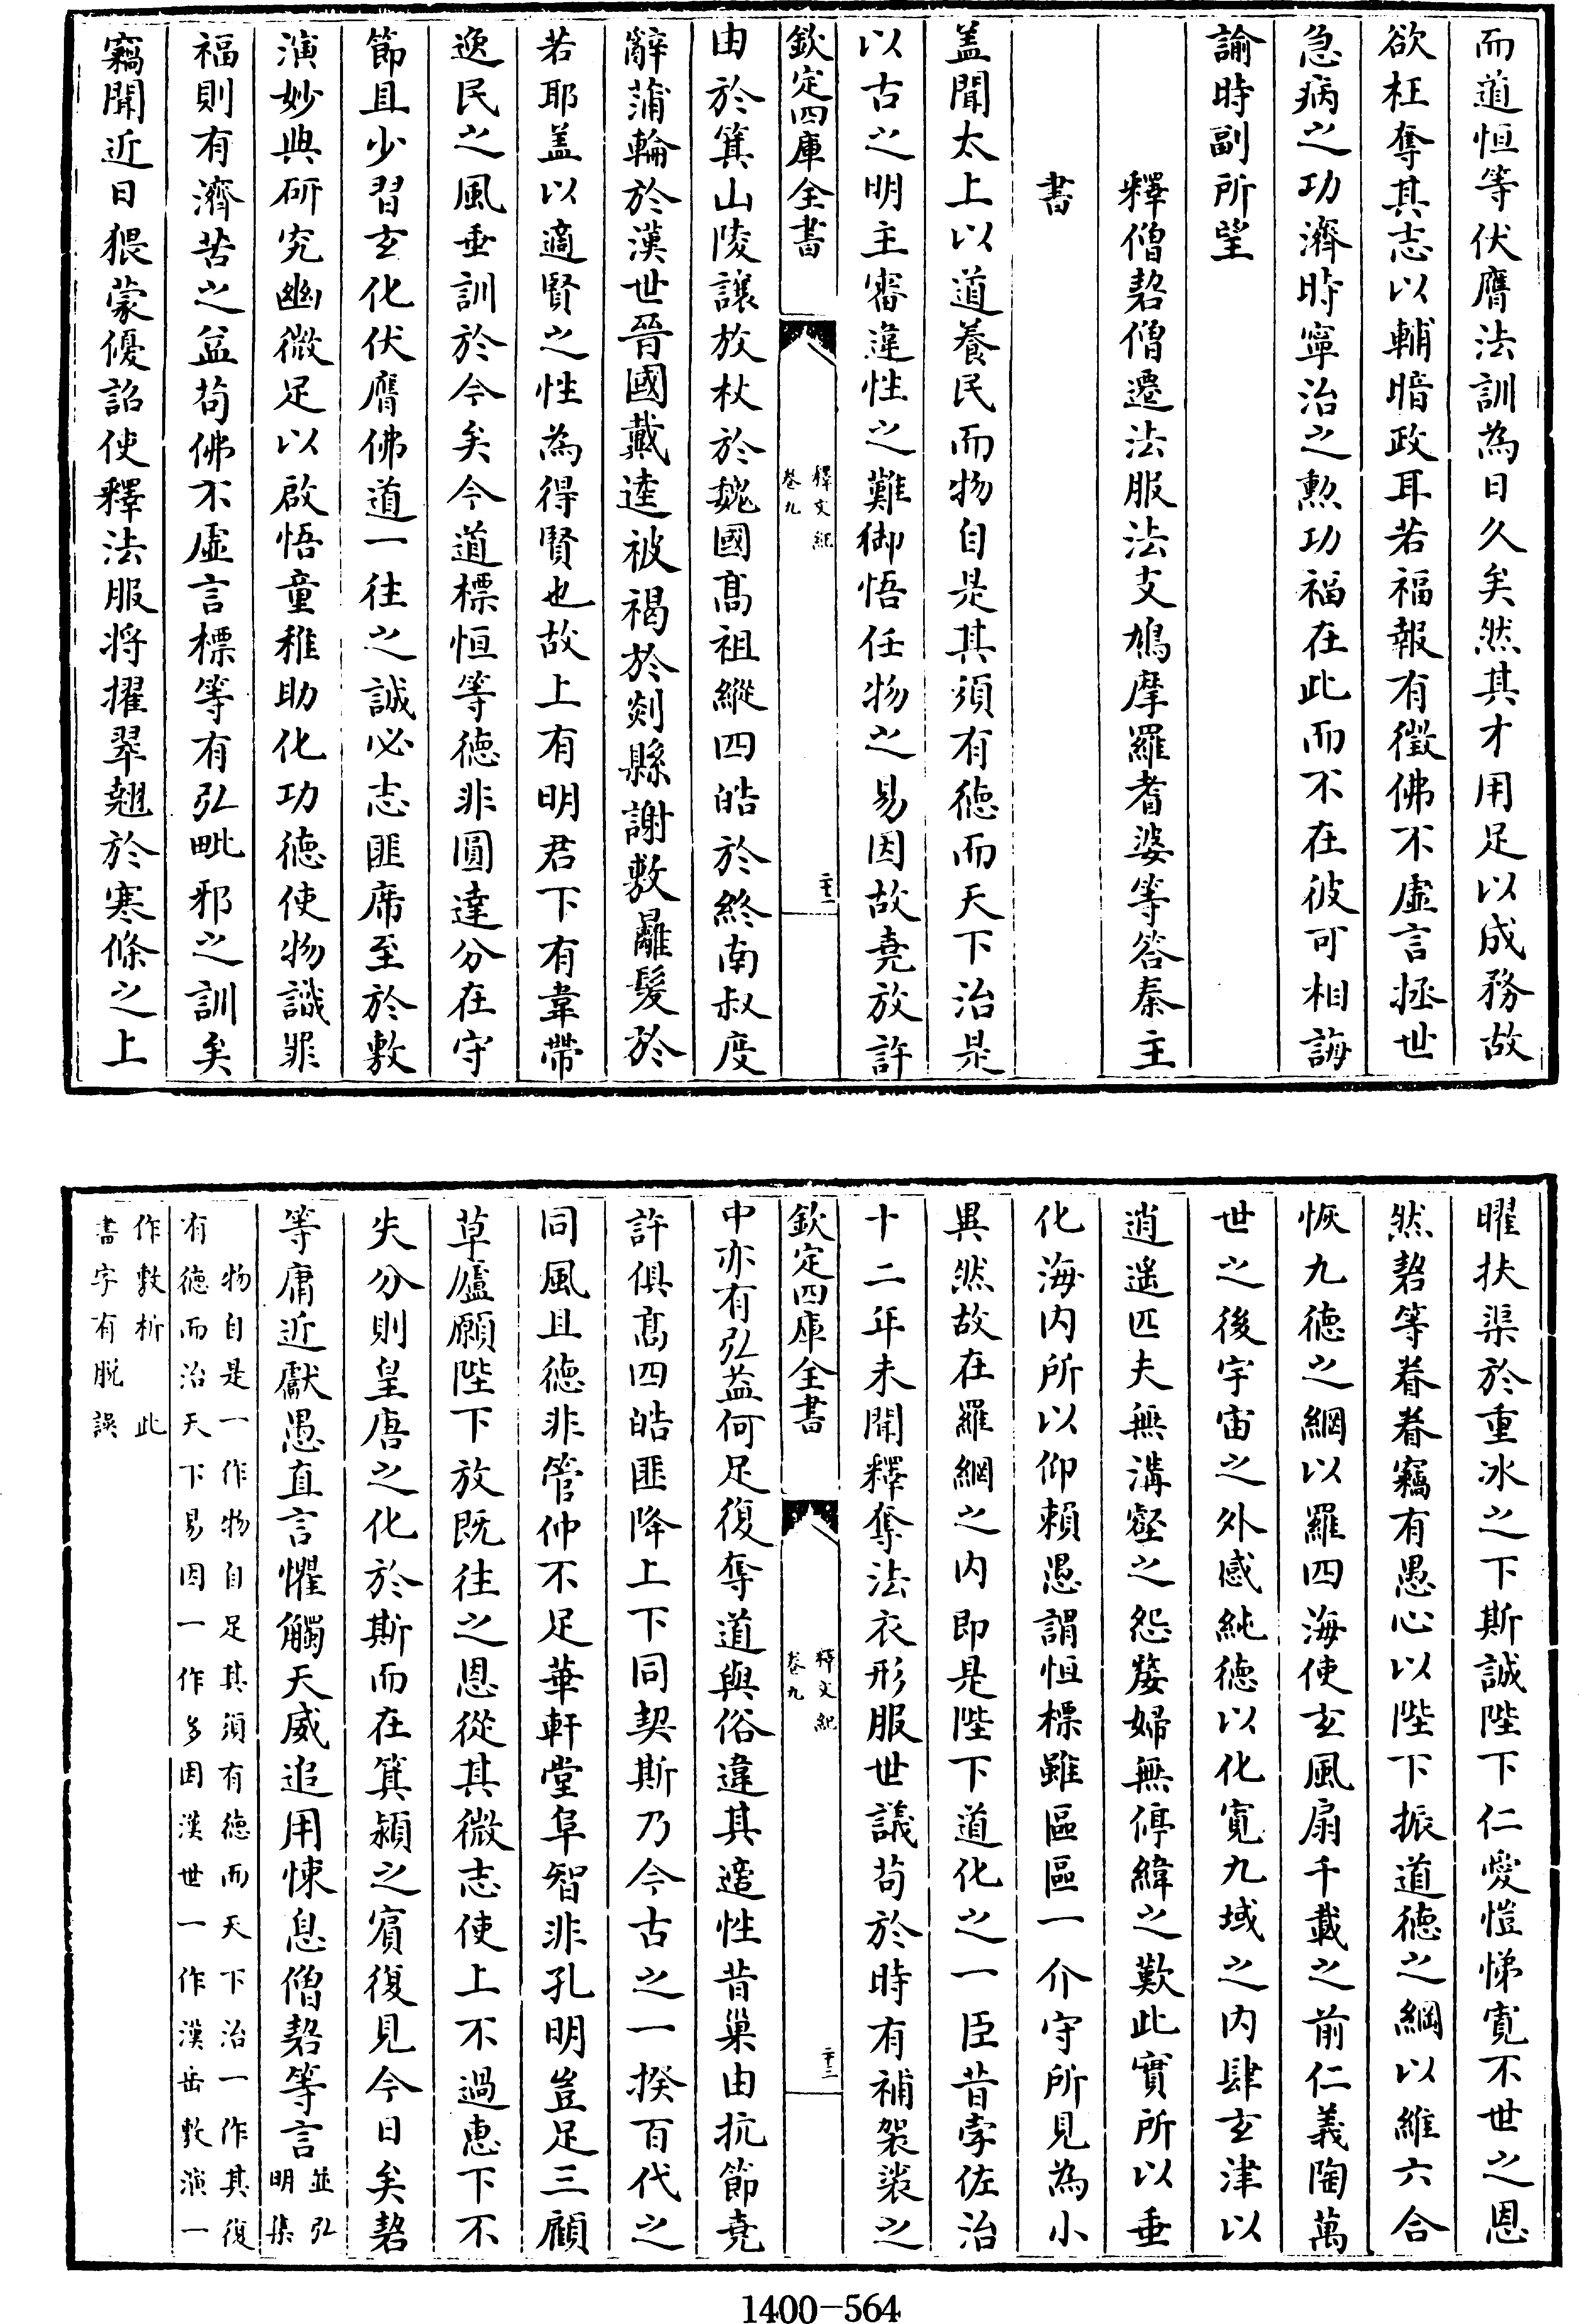 而道恒等伏膺法訓為日久矣然其才用足以成務故
欲枉奪其志以輔暗政耳若福報有徵佛不虛言拯世
急病之功濟時寧治之勲功福在此而不在彼可相誨
諭時副所望
釋僧䂮僧遷法服法支鳩摩羅耆婆等答秦主
書
盖聞太上以道養民而物自是其須有徳而天下治是
以古之明主審違性之難御悟任物之易因故堯放許
欽定四庫全書
釋文紀
卷九
二十二
由於箕山陵讓放杖於魏國髙祖縱四皓於終南叔度
辭蒲輪於漢世晉國戴逵被褐於剡縣謝敷離髮於
若耶盖以適賢之性為得賢也故上有明君下有韋帶
逸民之風垂訓於今矣今道標恒等徳非圓達分在守
節且少習玄化伏膺佛道一往之誠必志匪席至於敷
演妙典研究幽微足以啟悟童稚助化功徳使物識罪
福則有濟苦之益苟佛不虛言標等有弘毗邪之訓矣
竊聞近日猥蒙優詔使釋法服將擢翠翹於寒條之上
曜扶渠於重冰之下斯誠陛下仁愛愷悌寛不世之恩
然䂮等眷眷竊有愚心以陛下振道徳之綱以維六合
恢九徳之網以羅四海使玄風扇千載之前仁義陶萬
世之後宇宙之外感純徳以化寛九域之内肆玄津以
逍遙匹夫無溝壑之怨嫠婦無停緯之歎此實所以垂
化海内所以仰賴愚謂恒標雖區區一介守所見為小
異然故在羅網之内即是陛下道化之一臣昔孛佐治
十二年未聞釋奪法衣形服世議苟於時有補袈裟之
欽定四庫全書
釋文紀
卷九
二十三
中亦有弘益何足復奪道與俗違其適性昔巢由抗節堯
許俱髙四皓匪降上下同契斯乃今古之一揆百代之
同風且徳非管仲不足華軒堂阜智非孔明豈足三顧
草廬願陛下放既往之恩從其微志使上不過惠下不
失分則皇唐之化於斯而在箕潁之賓復見今日矣䂮
等庸近獻愚直言懼觸天威追用悚息僧䂮等言
並弘
明集
物自是一作物自足其須有徳而天下治一作其復
有徳而治天下易因一作多因漢世一作漢岳敷演一
作敷析 此
書字有脱誤
1400-564